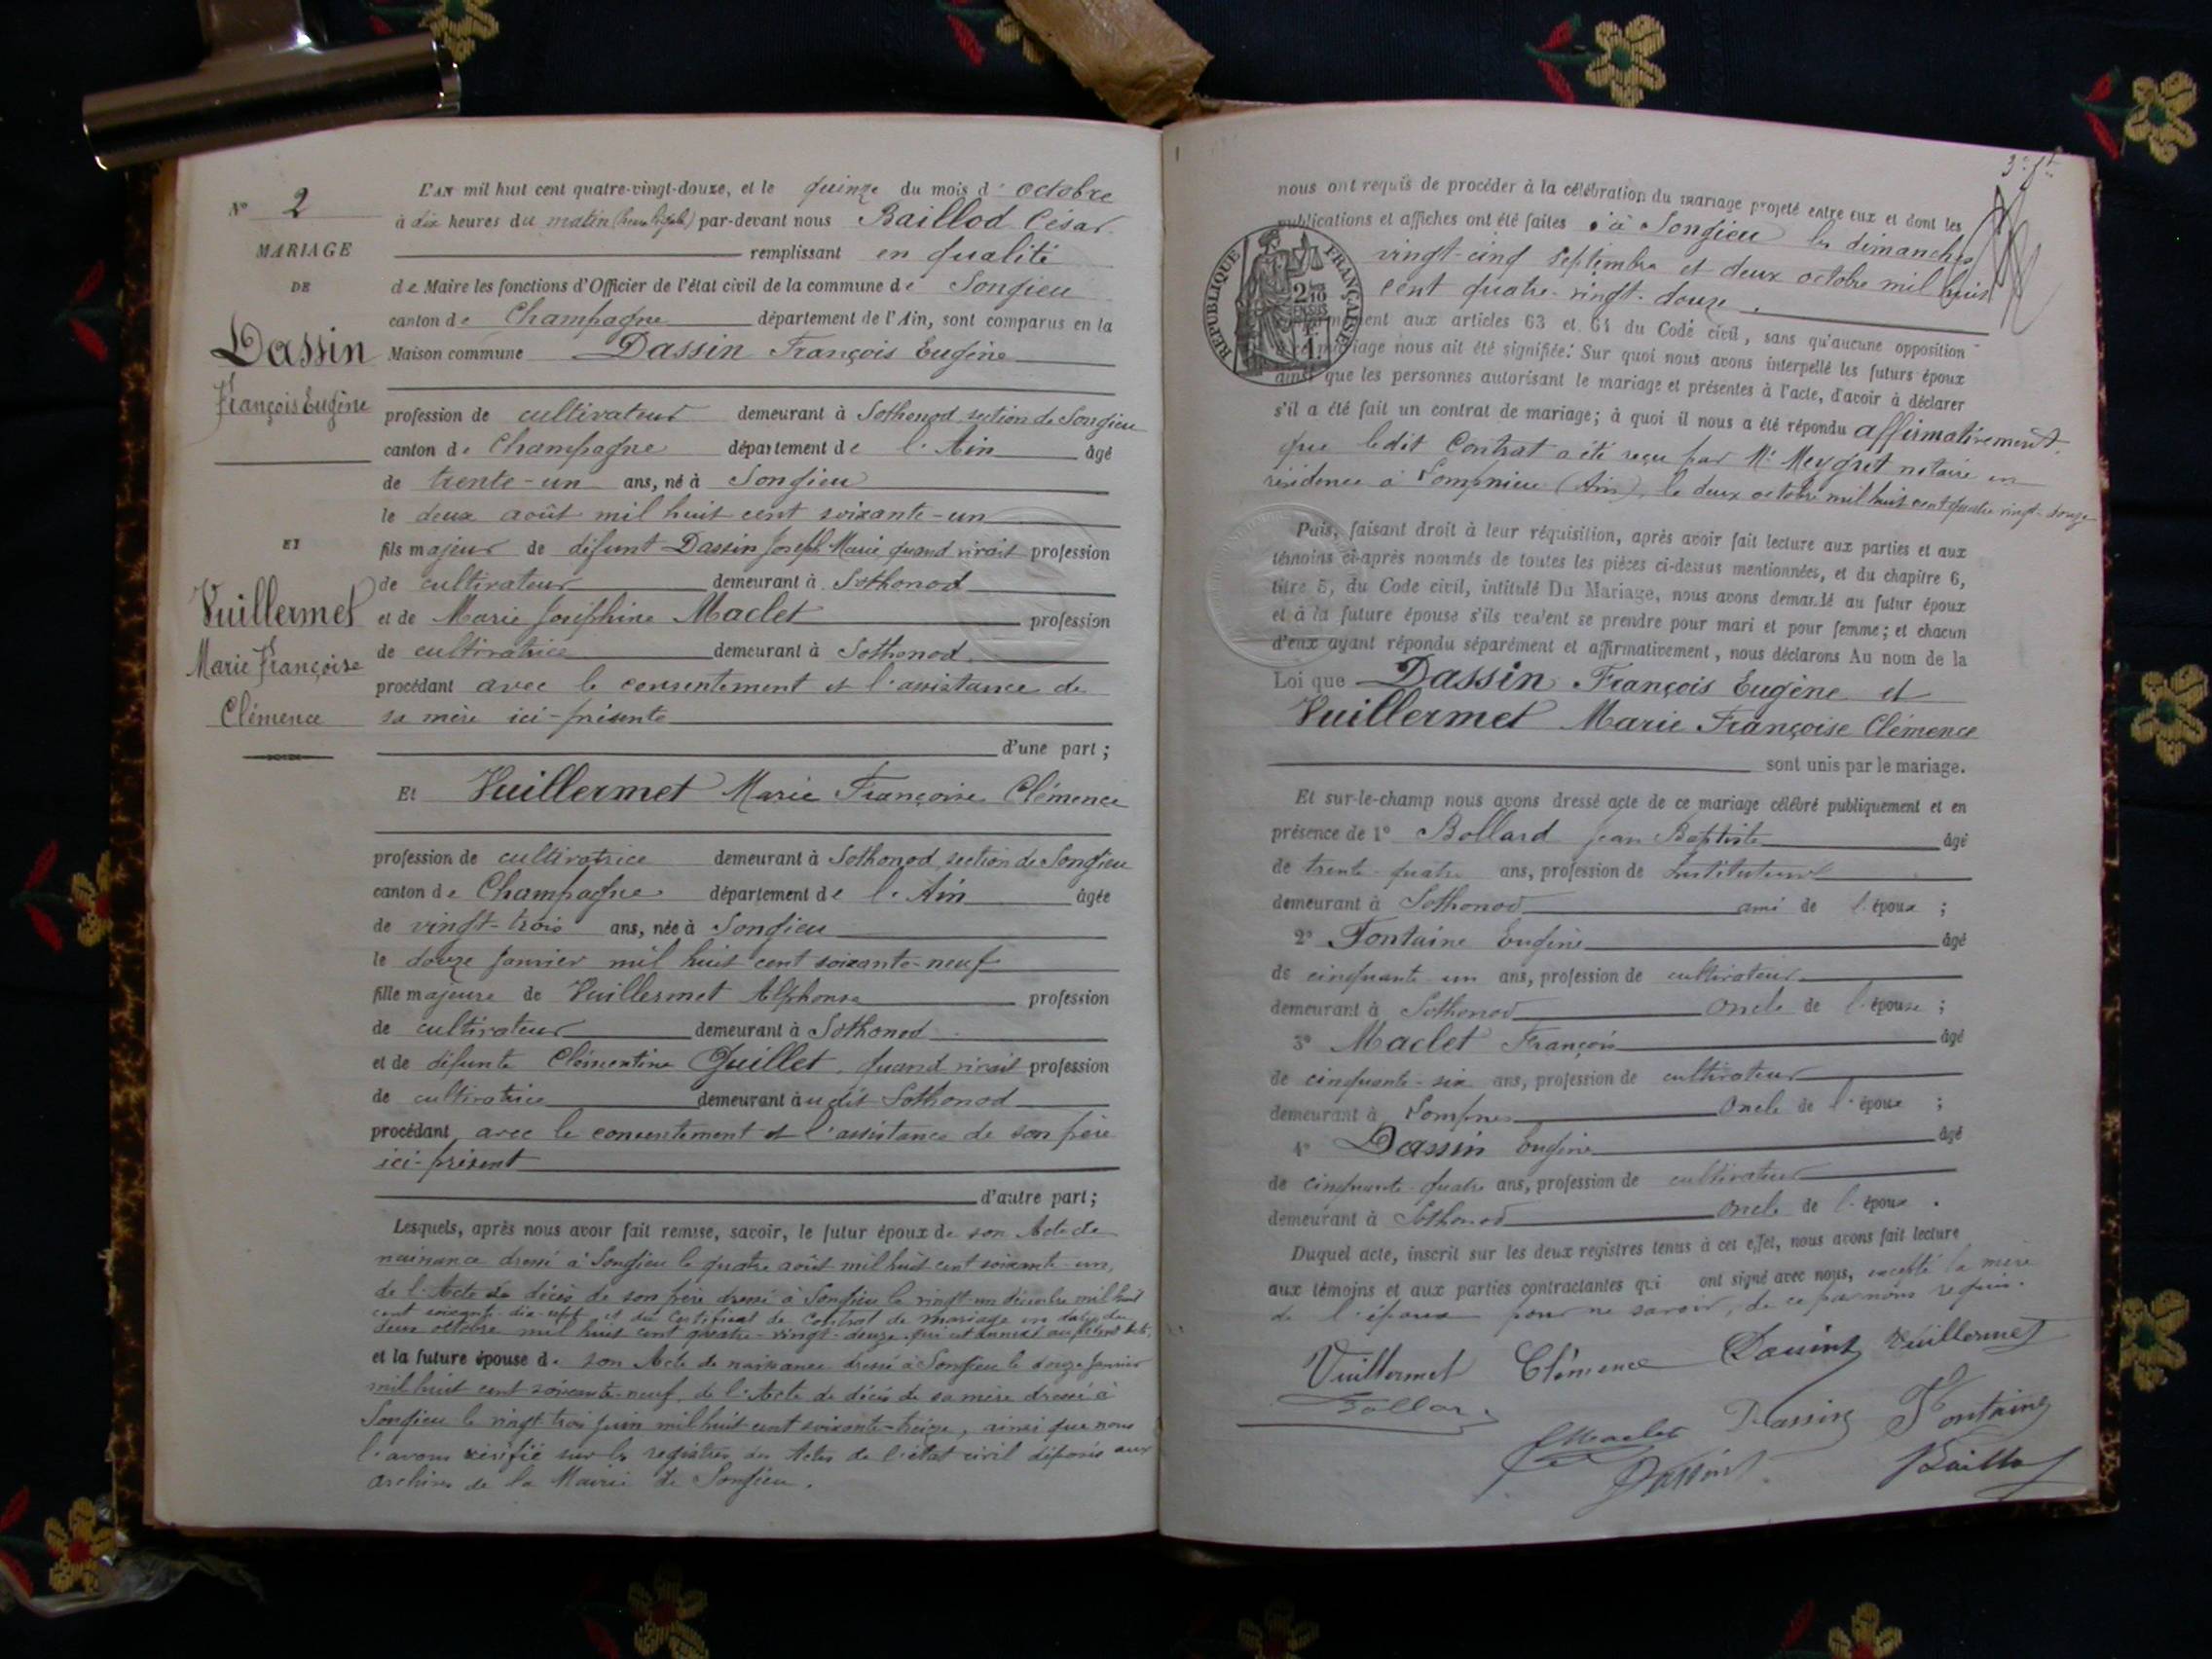 N° 2
MARIAGE
DE
Dassin
François Eugène
ET
Vuillermet
Marie Françoise
Clémence
L'AN mil huit cent quatre-vingt-douze, et le quinze du mois d'octobre
à dix heures du matin (heure légale) par-devant nous Baillod César
remplissant en qualité
de Maire les fonctions d'Officier de l'état civil de la commune de Songieu
canton de Champagne département de l'Ain, sont comparus en la
Maison commune Dassin François Eugène
profession de cultivateur demeurant à Sothonod, section de Songieu
canton de Champagne département de l'Ain âgé
de trente-un ans, né à Songieu
le deux août mil huit cent soixante-un
fils majeur de défunt Dassin Joseph Marie, quand vivait profession
de cultivateur demeurant à Sothonod
et de Marie Joséphine Maclet profession
de cultivatrice demeurant à Sothonod
procédant avec le consentement et l'assistance de
sa mère ici-présente
d'une part ;
Et Vuillermet Marie Françoise Clémence
profession de cultivatrice demeurant à Sothonod, section de Songieu
canton de Champagne département de l'Ain âgée
de vingt-trois ans, née à Songieu
le douze janvier mil huit cent soixante-neuf
fille majeure de Vuillermet Alphonse profession
de cultivateur demeurant à Sothonod
et de défunte Clémentine Quillet, quand vivait profession
de cultivatrice demeurant au dit Sothonod
procédant avec le consentement et l'assistance de son père
ici-présent
d'autre part ;
Lesquels, après nous avoir fait remise, savoir, le futur époux de son Acte de
naissance dressé à Songieu le quatre août mil huit cent soixante-un,
de l'Acte de décès de son père dressé à Songieu le vingt-un décembre mil huit
cent soixante-dix-sept et du Certificat de contrat de mariage en date du
deux octobre mil huit cent quatre-vingt-douze qui est annexé au présent acte,
et la future épouse de son Acte de naissance dressé à Songieu le douze janvier
mil huit cent soixante-neuf, de l'Acte de décès de sa mère dressé à
Songieu le vingt-trois juin mil huit cent soixante-treize, ainsi que nous
l'avons vérifié sur les registres des Actes de l'état civil déposés aux
archives de la Mairie de Songieu.
nous ont requis de procéder à la célébration du mariage projeté entre eux et dont les
publications et affiches ont été faites à Songieu les dimanches
vingt-cinq septembre et deux octobre mil huit
cent quatre-vingt-douze.
RÉPUBLIQUE FRANÇAISE
aux articles 63 et 64 du Code civil, sans qu'aucune opposition
à ce mariage nous ait été signifiée. Sur quoi nous avons interpellé les futurs époux
ainsi que les personnes autorisant le mariage et présentes à l'acte, d'avoir à déclarer
s'il a été fait un contrat de mariage ; à quoi il nous a été répondu affirmativement.
que ledit Contrat a été reçu par Me Meygret notaire en
résidence à (Ain), le deux octobre mil huit cent quatre-vingt-douze
Puis, faisant droit à leur réquisition, après avoir fait lecture aux parties et aux
témoins ci-après nommés de toutes les pièces ci-dessus mentionnées, et du chapitre 6,
titre 5, du Code civil, intitulé Du Mariage, nous avons demandé au futur époux
et à la future épouse s'ils veulent se prendre pour mari et pour femme ; et chacun
d'eux ayant répondu séparément et affirmativement, nous déclarons Au nom de la
Loi que Dassin François Eugène et
Vuillermet Marie Françoise Clémence
sont unis par le mariage.
Et sur-le-champ nous avons dressé acte de ce mariage célébré publiquement et en
présence de 1° Bollard Jean Baptiste âgé
de trente-quatre ans, profession de Instituteur
demeurant à Sothonod ami de l'époux ;
2° Fontaine Eugène âgé
de cinquante un ans, profession de cultivateur
demeurant à Sothonod Oncle de l'épouse ;
3° Maclet François âgé
de cinquante-six ans, profession de cultivateur
demeurant à Oncle de l'époux ;
4° Dassin Eugène âgé
de cinquante-quatre ans, profession de cultivateur
demeurant à Sothonod Oncle de l'époux.
Duquel acte, inscrit sur les deux registres tenus à cet effet, nous avons fait lecture
aux témoins et aux parties contractantes qui ont signé avec nous, excepté la mère
de l'époux pour ne savoir, de ce par nous requise.
Vuillermet Clémence Dassin Vuillermet
Bollard
Maclet Dassin Fontaine
Dassin Baillod